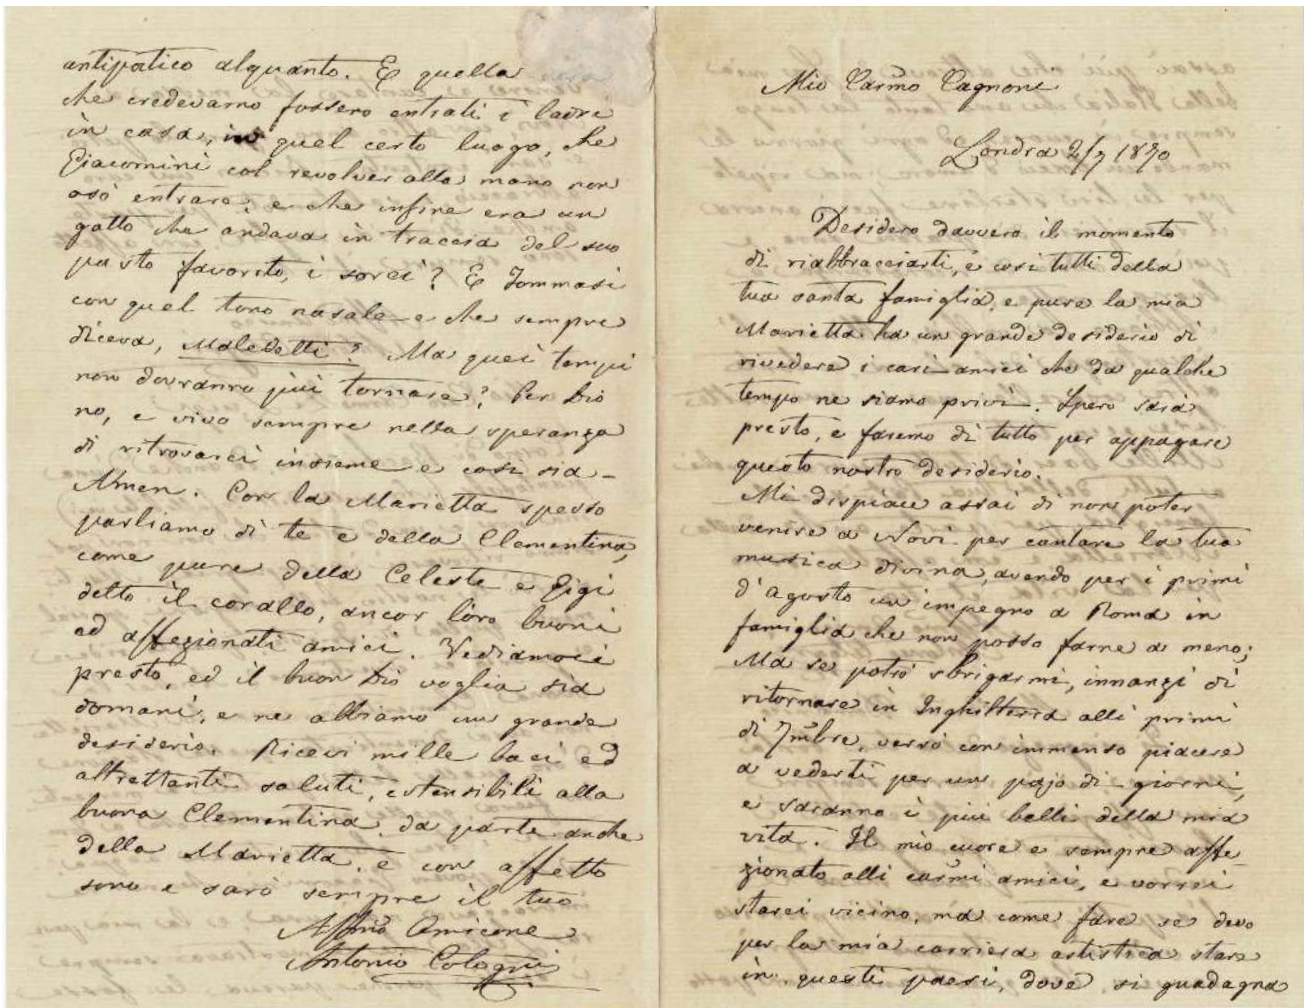 antipatico alquanto. E quella
che credevamo fossero entrati i ladri
in casa, in quel certo luogo, che
Giacomini col revolver alla mano non
osò entrare; e che infine era un
gatto che andava in traccia del suo
pasto favorito, i sorci? E Tommasi
con quel tono nasale e che sempre
diceva, Maledetti? Ma quei tempi
non dovranno più tornare? Per Dio
no, e vivo sempre nella speranza
di ritrovarci insieme e così sia -
Amen. Con la Marietta spesso
parliamo di te e della Clementina,
come pure della Celeste e Gigi
detto il corallo, ancor loro buoni
ed affezionati amici. Vediamoci
presto, ed il buon Dio voglia sia
domani, e ne abbiamo un grande
desiderio. Ricevi mille baci ed
altrettanti saluti, estensibili alla
buona Clementina, da parte anche
della Marietta, e con affetto
sono e sarò sempre il tuo
Affmo Amicone
Antonio Cotogni
Mio Carmo Cagnoni
Londra 2/7 1870
Desidero davvero il momento
di riabbracciarti, e così tutti della
tua santa famiglia, e pure la mia
Marietta ha un grande desiderio di
rivedere i cari amici che da qualche
tempo ne siamo privi. Spero sarà
presto, e faremo di tutto per appagare
questo nostro desiderio.
Mi dispiace assai di non poter
venire a Novi per cantare la tua
musica divina, avendo per i primi
d'Agosto un impegno a Roma in
famiglia che non posso farne a meno;
Ma se potrò sbrigarmi, innanzi di
ritornare in Inghilterra alli primi
di 7mbre, verrò con immenso piacere
a vederti per un pajo di giorni,
e saranno i più belli della mia
vita. Il mio cuore e sempre affe
zionato alli carmi amici, e vorrei
starci vicino, ma come fare se devo
per la mia carriera artistica stare
in questi paesi, dove si guadagna